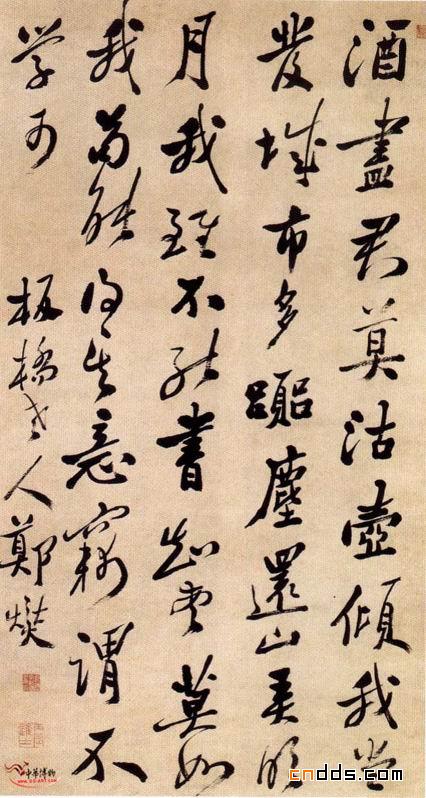 酒盡君莫沽壺傾我當
發城市多囂塵還山弄明
月我雖不能書知書莫如
我苟能得其意竊謂不
學可
板橋老人鄭燮
中华博物
cndds.com